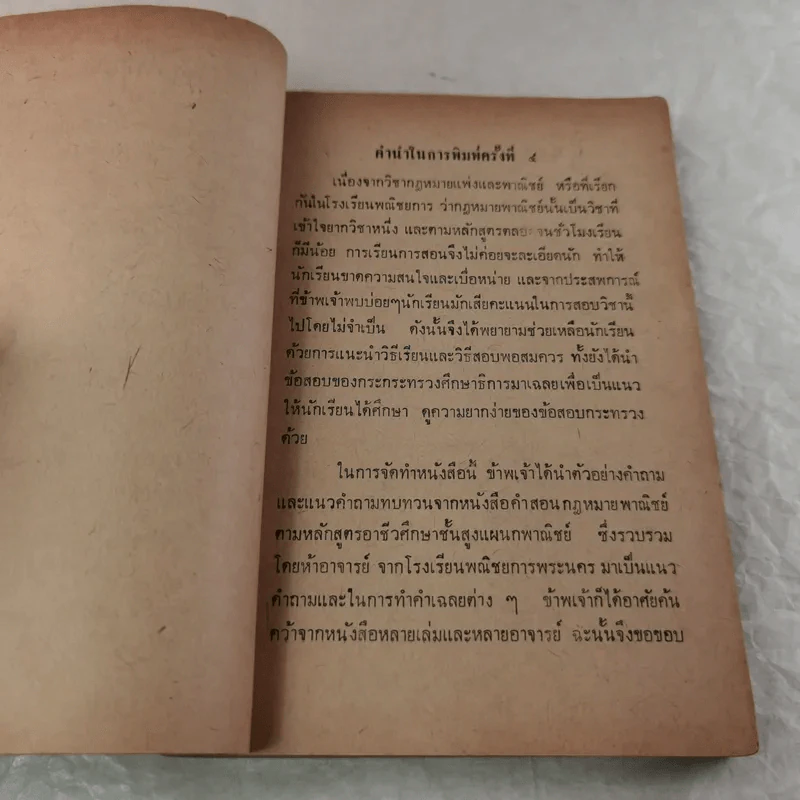 คำนำในการพิมพ์ครั้งที่ ๔
เนื่องจากวิชากฎหมายแพ่งและพาณิชย์ หรือที่เรียก
กันในโรงเรียนพณิชยการ ว่ากฎหมายพาณิชย์นั้นเป็นวิชาที่
เข้าใจยากวิชาหนึ่ง และตามหลักสูตรตลอดจนชั่วโมงเรียน
ก็มีน้อย การเรียนการสอนจึงไม่ค่อยจะละเอียดนัก ทำให้
นักเรียนขาดความสนใจและเบื่อหน่าย และจากประสพการณ์
ที่ข้าพเจ้าพบบ่อยๆนักเรียนมักเสียคะแนนในการสอบวิชานี้
ไปโดยไม่จำเป็น ดังนั้นจึงได้พยายามช่วยเหลือนักเรียน
ด้วยการแนะนำวิธีเรียนและวิธีสอบพอสมควร ทั้งยังได้นำ
ข้อสอบของกระกระทรวงศึกษาธิการมาเฉลยเพื่อเป็นแนว
ให้นักเรียนได้ศึกษา ดูความยากง่ายของข้อสอบกระทรวง
ด้วย
ในการจัดทำหนังสือนี้ ข้าพเจ้าได้นำตัวอย่างคำถาม
และแนวคำถามทบทวนจากหนังสือคำสอนกฎหมายพาณิชย์
ตามหลักสูตรอาชีวศึกษาชั้นสูงแผนกพาณิชย์ ซึ่งรวบรวม
โดยห้าอาจารย์ จากโรงเรียนพณิชยการพระนคร มาเป็นแนว
คำถามและในการทำคำเฉลยต่าง ๆ ข้าพเจ้าก็ได้อาศัยค้น
คว้าจากหนังสือหลายเล่มและหลายอาจารย์ ฉะนั้นจึงขอขอบ